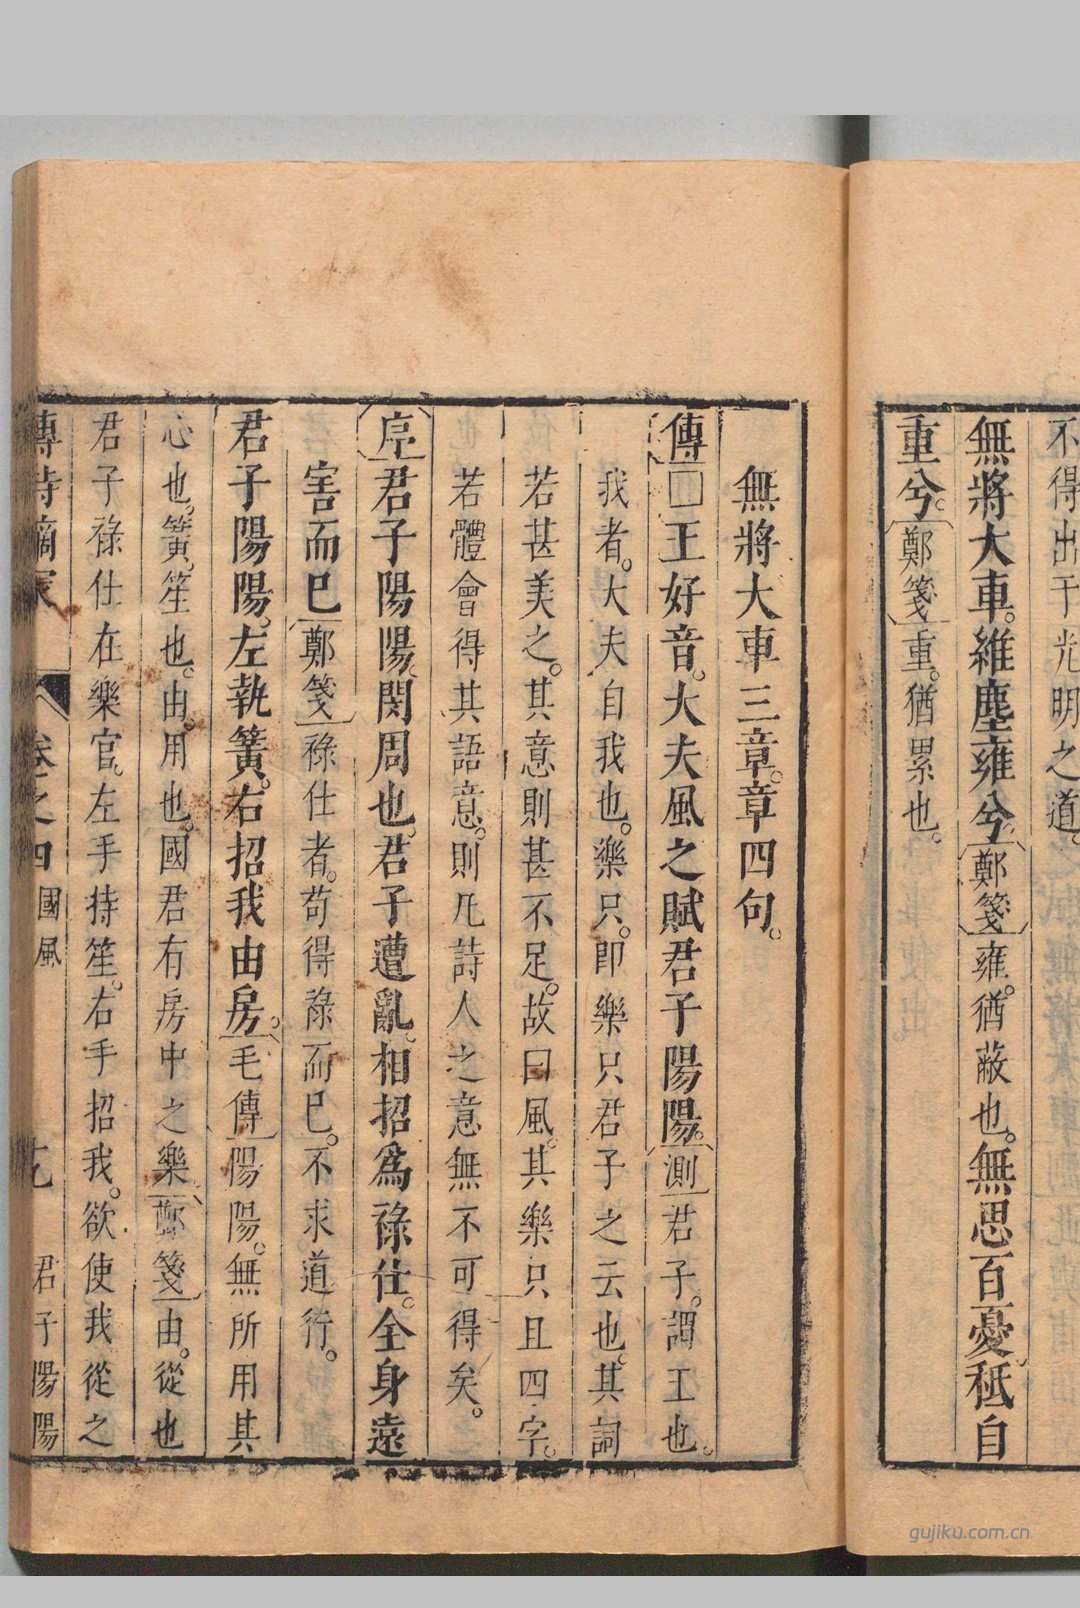 不得出于光明之道。
無將大車。維塵雍兮。鄭箋雍。猶蔽也。無思百憂。秪自
重兮。鄭箋重。猶累也。
無將大車三章。章四句。
傳□王好音。大夫風之賦君子陽陽。測君子。謂王也。
我者。大夫自我也。樂只。即樂只君子之云也。其詞
若甚美之。其意則甚不足。故曰風。其樂只且四字。
若體會得其語意。則凡詩人之意無不可得矣。
序君子陽陽。閔周也。君子遭亂。相招為祿仕。全身遠
害而已。鄭箋祿仕者。苟得祿而已。不求道行。
君子陽陽。左執簧。右招我由房。毛傳陽陽。無所用其
心也。簧。笙也。由。用也。國君有房中之樂。鄭箋由。從也
君子祿仕在樂官。左手持笙。右手招我。欲使我從之
傳詩嫡冢 卷之四 國風 君子陽陽
gujiku.com.cn